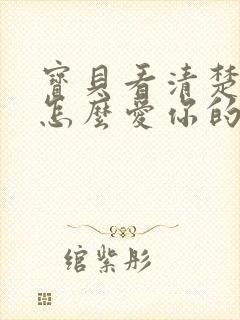 寶貝看清楚
怎麼愛你的
綰紫彤